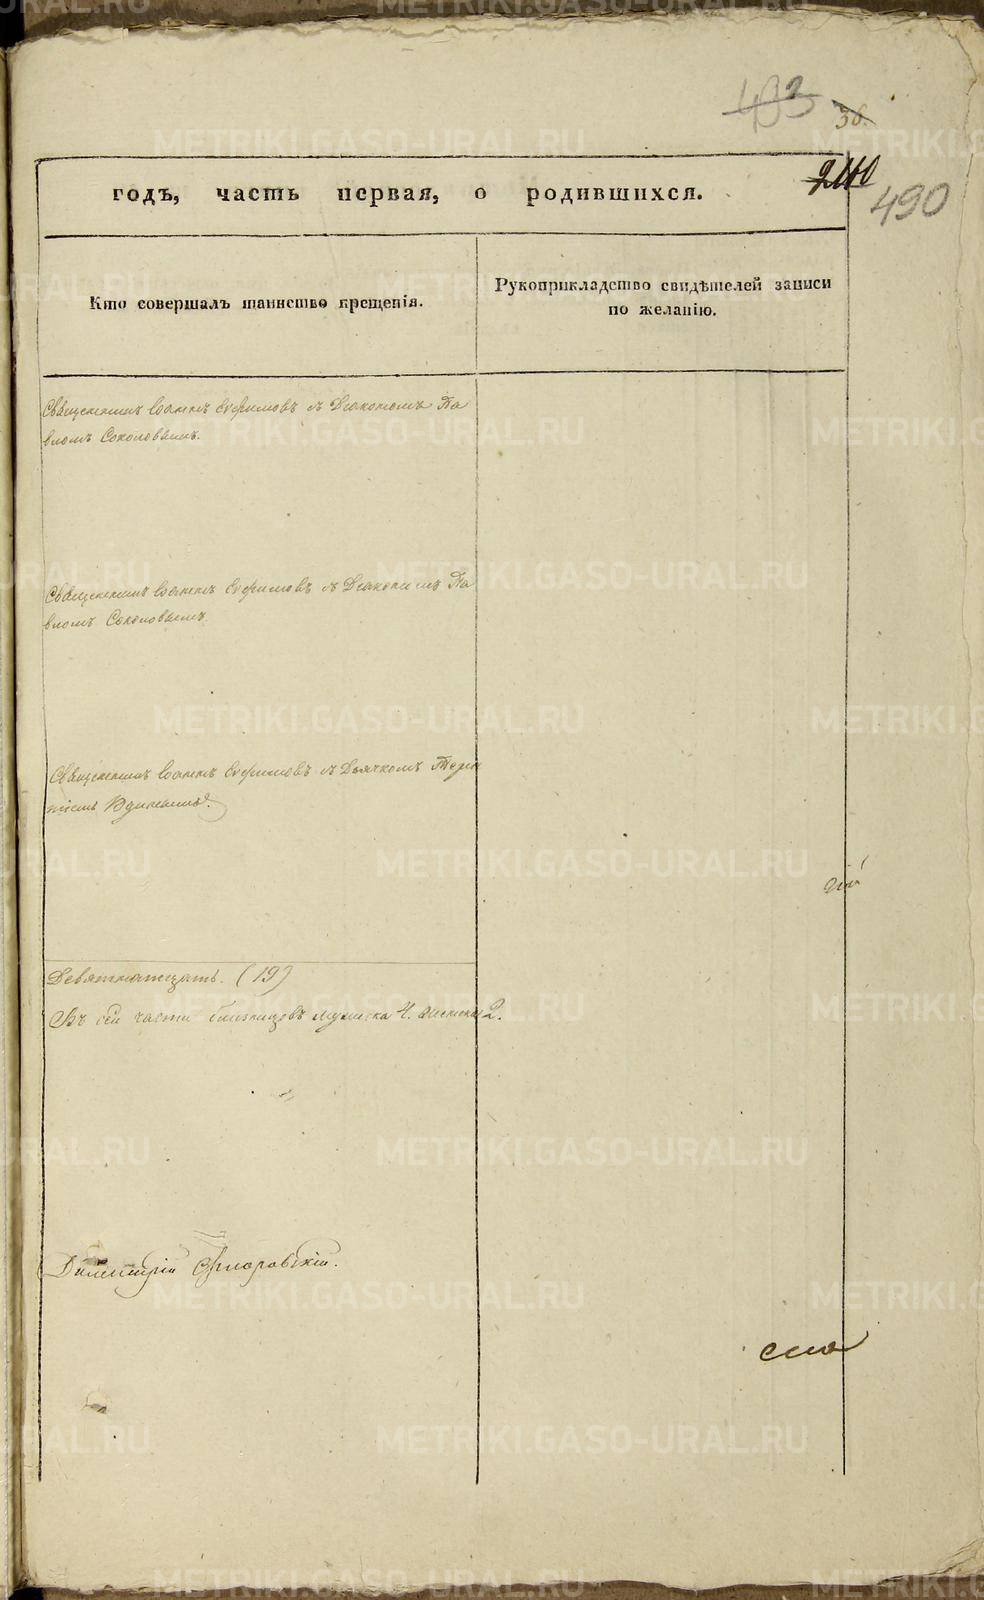 433
36.
240
490
годъ, часть первая, о родившихся.
Кто совершалъ таинство крещенія.
Рукоприкладство свидѣтелей записи
по желанію.
Священникъ Іоаннъ Ефимовъ съ Діакономъ Па
вломъ Соколовымъ.
Священникъ Іоаннъ Ефимовъ съ Діакономъ Па
вломъ Соколовымъ.
Священникъ Іоаннъ Ефимовъ съ Дьячкомъ
Девятнатцать. (19)
Въ сей части близнецовъ мужска 4. женска 2.
Димитрій
METRIKI.GASO-URAL.RU